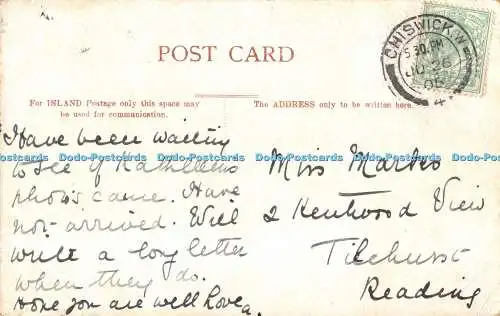 POST CARD
For INLAND Postage only this space may
be used for communication.
The ADDRESS only to be written here.
CHISWICK.W
5.30.PM
JU 26
05
4
Have been waiting
to see if Kathleens
photo's came. Have
not arrived. Will
write a long letter
when they do.
Hope you are well love
Miss Marks
2 Kentwood View
Tilehurst
Reading
Dodo-Postcards Dodo-Postcards Dodo-Postcards Dodo-Postcards Dodo-Postcards